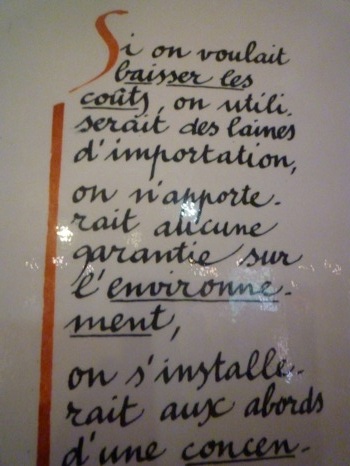 Si on voulait
baisser les
coûts, on utili.
serait des laines
d'importation,
on n'apporte-
rait aucune
garantie sur
l'environne-
ment,
on s'installe-
rait aux abords
d'une concen-